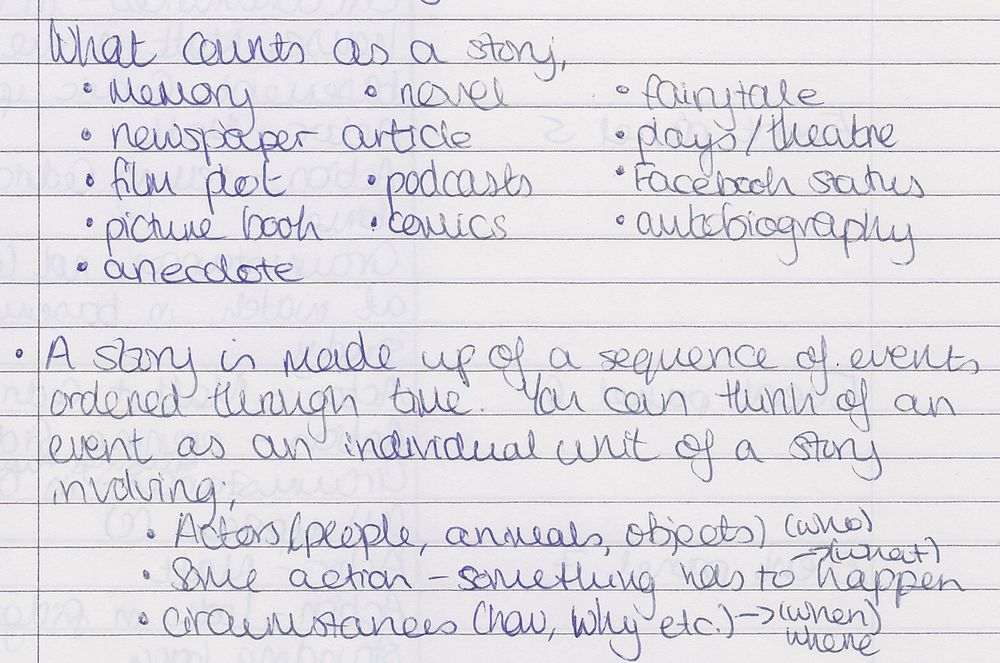 What counts as a story,
• Memory • novel • fairytale
• newspaper article • plays/theatre
• film plot • podcasts • Facebook status
• picture book • comics • autobiography
• anecdote
• A story is made up of a sequence of events
ordered through time. You can think of an
event as an individual unit of a story
involving;
• Actors (people, animals, objects) (who)
→(what)
• Some action – something has to happen
• circumstances (how, why etc.) → (when)
where